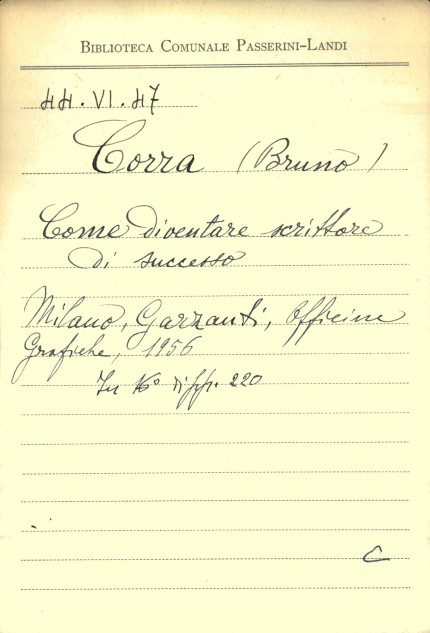 BIBLIOTECA COMUNALE PASSERINI-LANDI
44.VI.47
Corra (Bruno)
Come diventare scrittore
di successo
Milano, Garzanti, Officine
Grafiche, 1956
In 16° di pp. 220
C